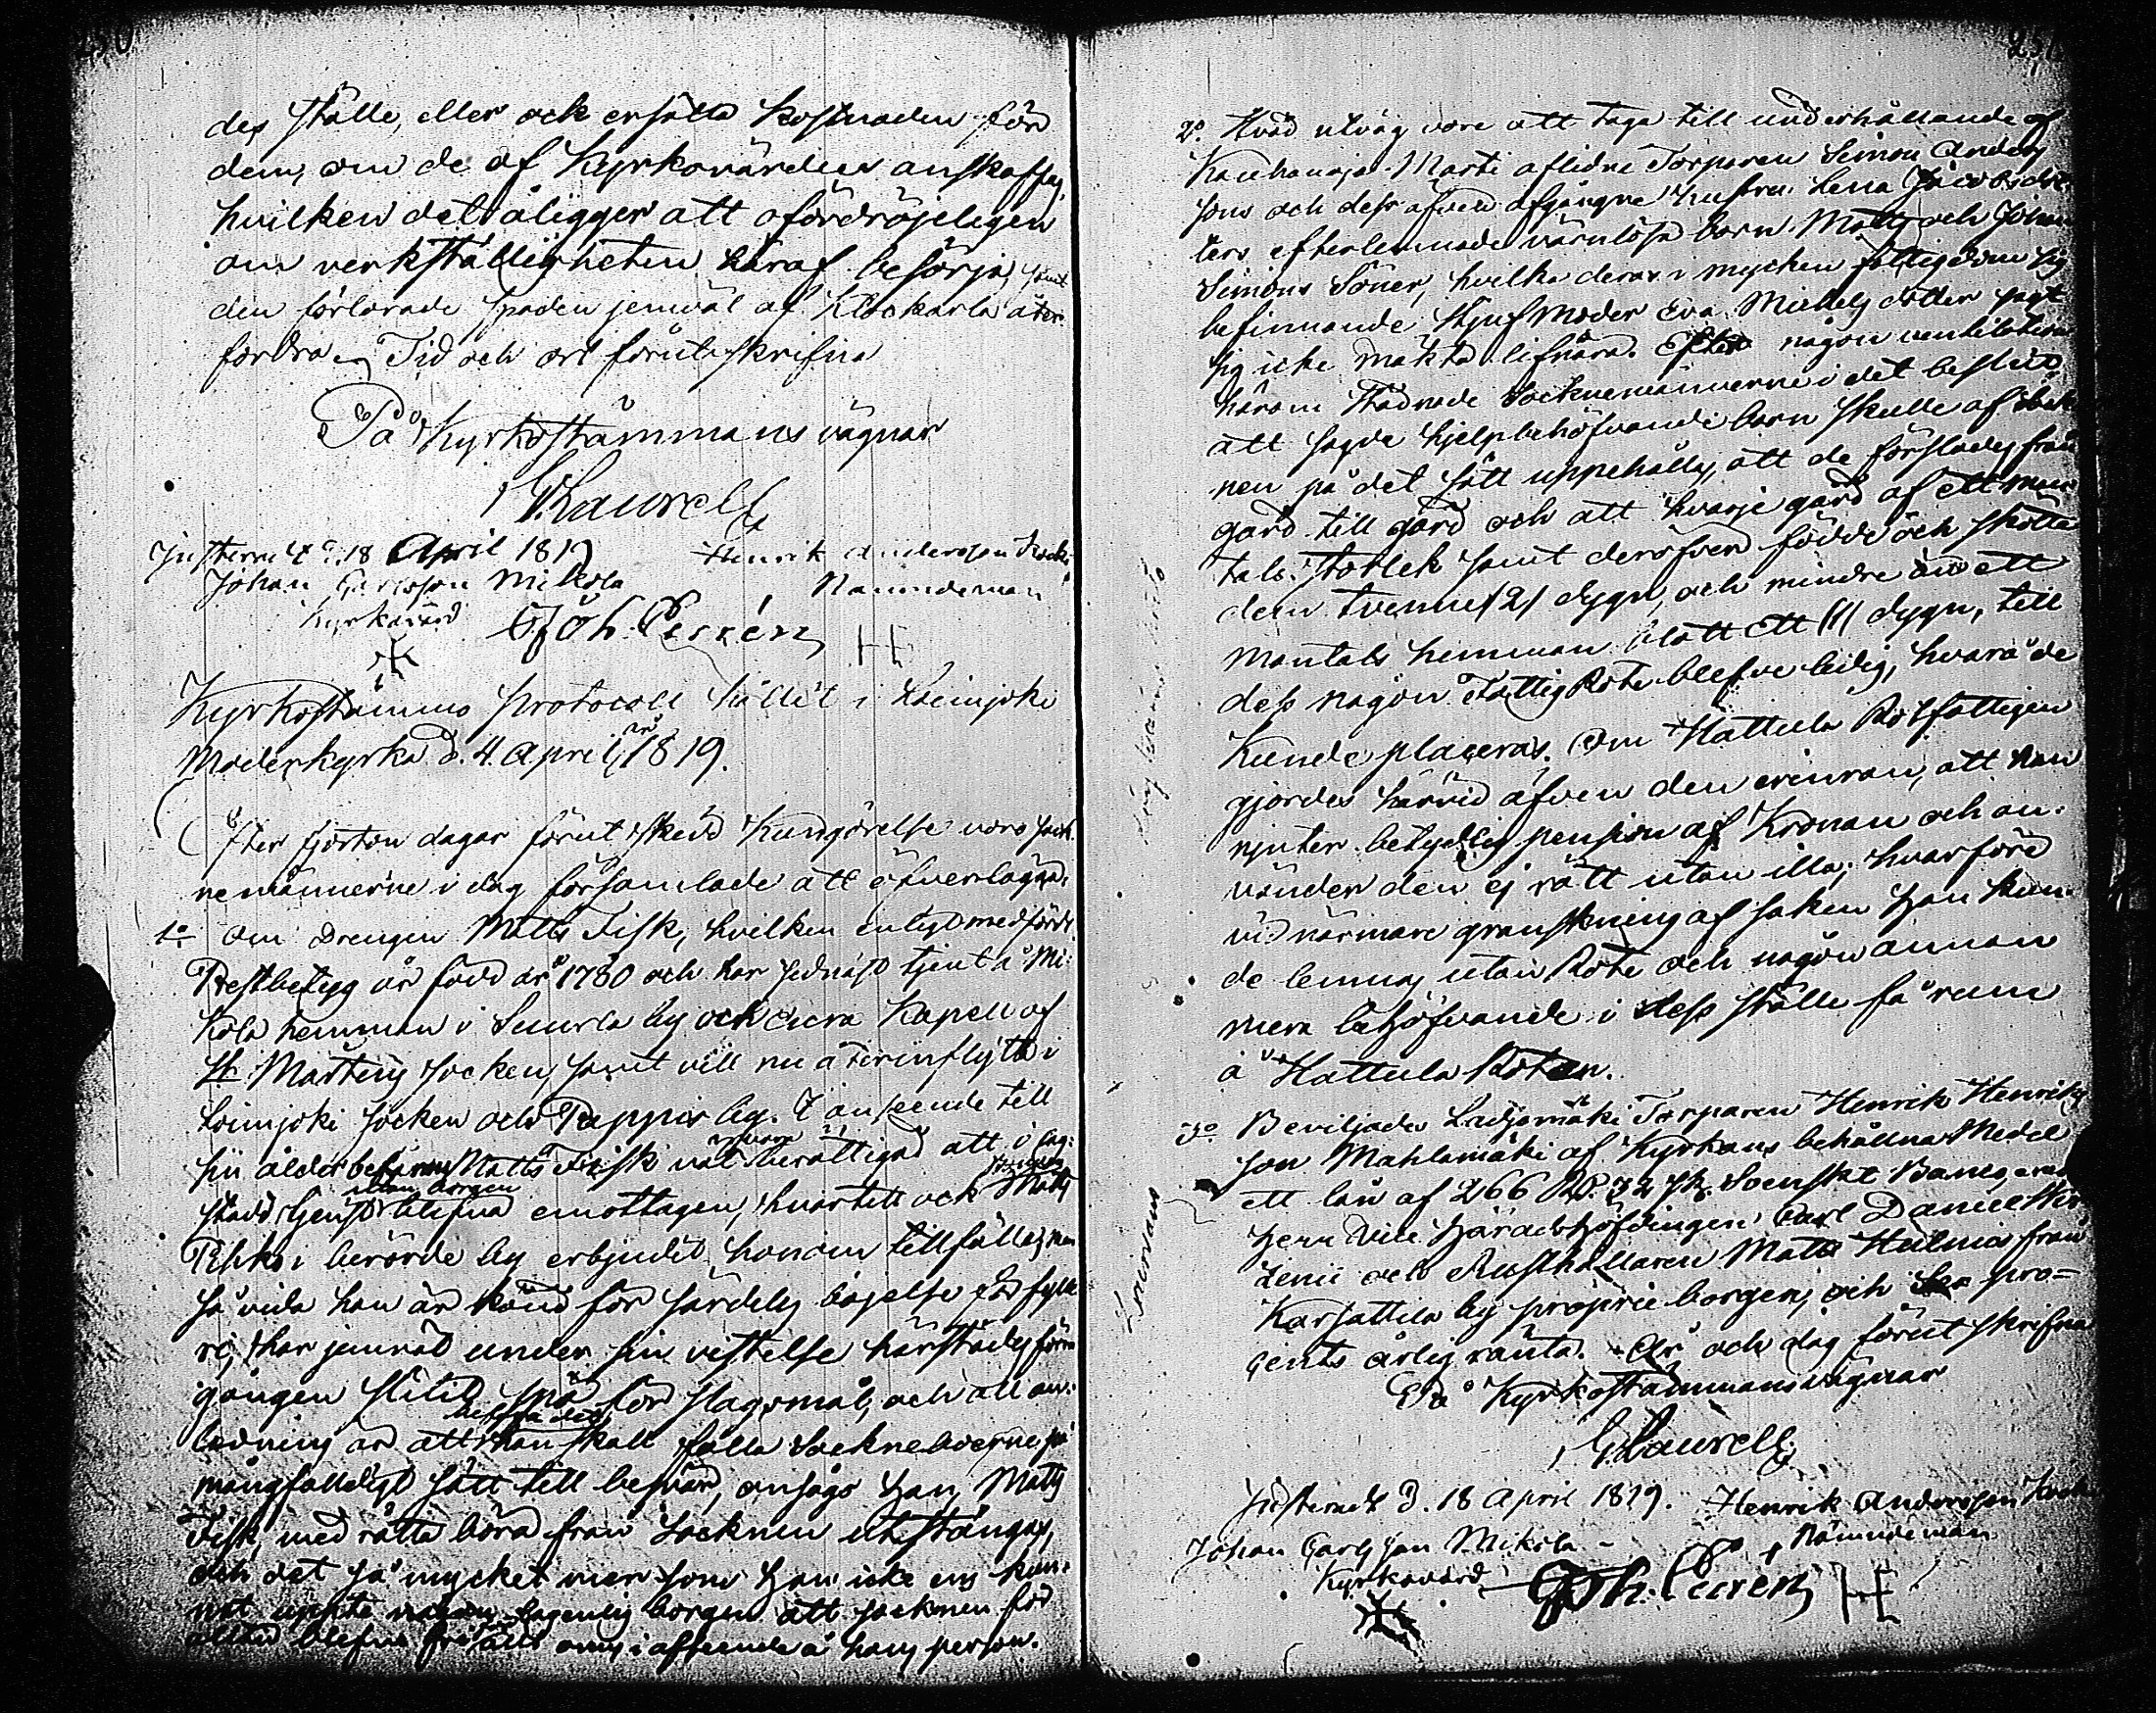 250
des ställe, eller ock ersätta kostnaden för
dem, om de af Kyrkovärden anskaffas,
hvilken det åligger att ofördröjeligen
om verkställigheten häraf besörja, samt
den förlorade spaden jemväl af Klockarla åter-
fordra. Tid och ort förutskrifna
På Kyrkostämmans vägnar
G. Laurell
Justerad d. 18 April 1819
Henrik Andersson
Johan Carlsson Mikola
Nämndeman
Kyrkovärd
Joh. H
Kyrkostämmo Protocoll hållit i Loimjoki
Moderkyrka d. 4 April år 1819.
Efter fjorton dagar förut skedd Kungörelse voro Sock-
nemännerne i dag församlade att öfverlägga,
1o om Drengen Matts Fisk, hvilken enligt medförd
Prestbetyg är född år 1780 och har sednast tjent å Mi-
kola hemman i Suurla by och Kapell af
St Mårtens Socken, samt vill nu återinflytta i
Loimjoki Socken och Pappis by. I anseende till
sin ålder Matts Fisk väl vara berättigad att i lag-
stadd tjenst utan borgen blifva emottagen, hvartill ock Matts
i berörde by erbjudit honom tillfälle, men
så vida han är känd för särdeles böjelse för fylle-
ri, har jemväl under sin vistelse härstädes förra
gången slitit spö för slagsmål, och all an-
ledning är att befara det han skall falla Sockneboerne på
mångfalldigt sätt till besvär, ansågs han, Matts
Fisk, med rätta böra från Socknen utstängas,
och det så mycket mer som han icke ens kun-
nat uppte någon lagenlig borgen att socknen för
alltid blefve fri i afseende å hans person.
251
2o. Hvad utväg vore att taga till underhållande af
Kauhanoja Martti aflidne Torparen Simon Anders
sons och dess äfven afgångne hustru Lena Jacobsdot-
ters efterlemnade värnlösa barn Matts och Johan
Simons Söner, hvilka deras i mycken fattigdom sig
befinnande Stjufmoder Eva Mickels dotter sagt
sig icke mäkta lifnära. Efter någon ventilation
härom stadnade Sockenemännerne i det beslut,
att sagde hjelpbehöfvande barn skulle af
nen på det sätt uppehållas, att de förslades från
gård till gård och att hvarje gård af ett man-
tals storlek samt deröfver födde och skötte
dem tvenne /2/ dygn, och mindre än ett
mantals hemman blott ett /1/ dygn, till
dess någon Fattig Rote blefve ledig, hvarå de
kunde placeras. Om Hattula Rotfattigen
gjordes härvid äfven den erinran, att han
njuter betydlig pension af Kronan och an-
vänder den ej rätt utan illa; hvarföre
vid närmare granskning af saken han kun-
de lemnas utan Rote och någon annan
mera behöfvande i dess ställe få rum
å Hattula Roten.
3o Beviljades Ladjamäki Torparen Henrik Henriks
son Mahlamäki af Kyrkans behållna Medel
ett lån af 266 Rd. 32 sk. Svenskt Banco, emot
Herr Vice Häradshöfdingen Carl Daniel
zenii och Rusthållaren Matts Heilniä från
Karsattila by proprie borgen, och sex pro-
cents årlig ränta. År och dag förut skrifna
På Kyrkostämmans vägnar
G. Laurell
Justerad d. 18 April 1819. Henrik Andersson
Johan Carlsson Mikola
Nämndeman
Kyrkovärd
Joh. H